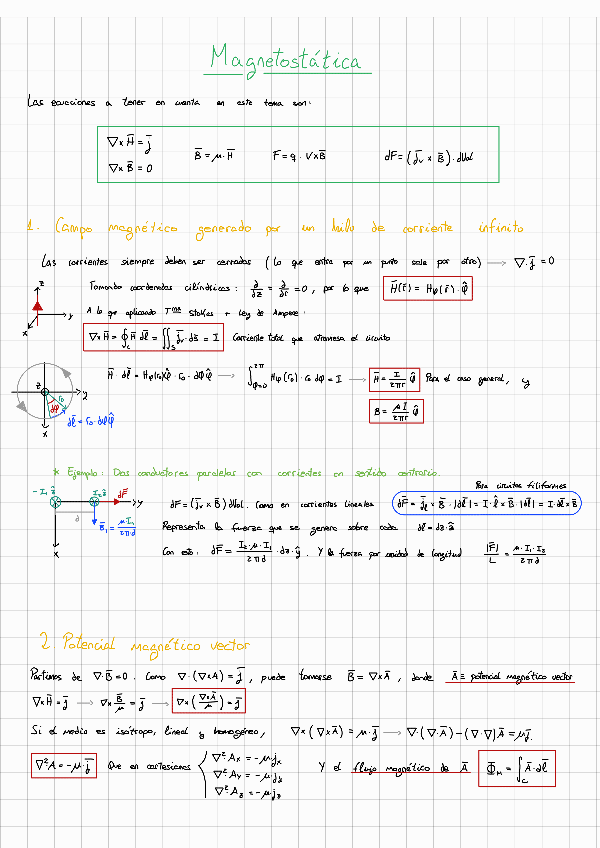 Magnetostática
Las ecuaciones a tener en cuenta en este tema son:
∇×H̄ = j̄
∇×B̄ = 0
B̄ = μ·H̄
F = q·V×B̄
dF = (j̄ᵥ × B̄)·dVol
1. Campo magnético generado por un hilo de corriente infinito
Las corrientes siempre deben ser cerradas (lo que entra por un punto sale por otro) → ∇·j̄ = 0
Tomando coordenadas cilíndricas: ∂/∂z = ∂/∂r = 0, por lo que H̄(r̄) = Hφ(r̄)·φ̂
A lo que aplicando Tma Stokes + Ley de Ampere:
∇×H̄ = ∮_C H̄ dl̄ = ∬_S j̄ᵥ·ds̄ = I Corriente total que atraviesa el circuito
z
y
x
H̄·dl̄ = Hφ(r₀)φ̂·r₀·dφ φ̂ → ∫_{φ=0}^{2π} Hφ(r₀)·r₀ dφ = I → H̄ = I/2πr φ̂ Para el caso general, y
B̄ = μI/2πr φ̂
z
r₀
dφ
x
dl̄ = r₀·dφ φ̂
* Ejemplo: Dos conductores paralelos con corrientes en sentido contrario.
Para circuitos filiformes
-I₁ ẑ
I₂ ẑ
dF̄
y
d
B̄₁ = μI₁/2πd
x
dF = (j̄ᵥ × B̄) dVol. Como en corrientes lineales dF̄ = j̄ₗ × B̄·|dl̄| = I·l̂ × B̄·|dl̄| = I·dl̄ × B̄
Representa la fuerza que se genera sobre cada dl̄ = dz·ẑ
Con esto: dF̄ = I₂·μ·I₁/2πd · dz·ŷ. Y la fuerza por unidad de longitud |F̄|/L = μ·I₁·I₂/2πd
2 Potencial magnético vector
Partimos de ∇·B̄ = 0. Como ∇·(∇×A) = j̄, puede tomarse B̄ = ∇×Ā, donde Ā ≡ potencial magnético vector
∇×H̄ = j̄ → ∇×B̄/μ = j̄ → ∇×(∇×Ā/μ) = j̄
Si el medio es isótropo, lineal y homogéneo, ∇×(∇×Ā) = μ·j̄ → ∇·(∇·Ā) − (∇·∇)Ā = μj̄.
∇²A = −μ·j̄ Que en cartesianas
∇²·Aₓ = −μ·jₓ
∇²·Aᵧ = −μ·jᵧ
∇²·A_z = −μ·j_z
Y el flujo magnético de Ā Φ̄_M = ∫_C Ā·dl̄